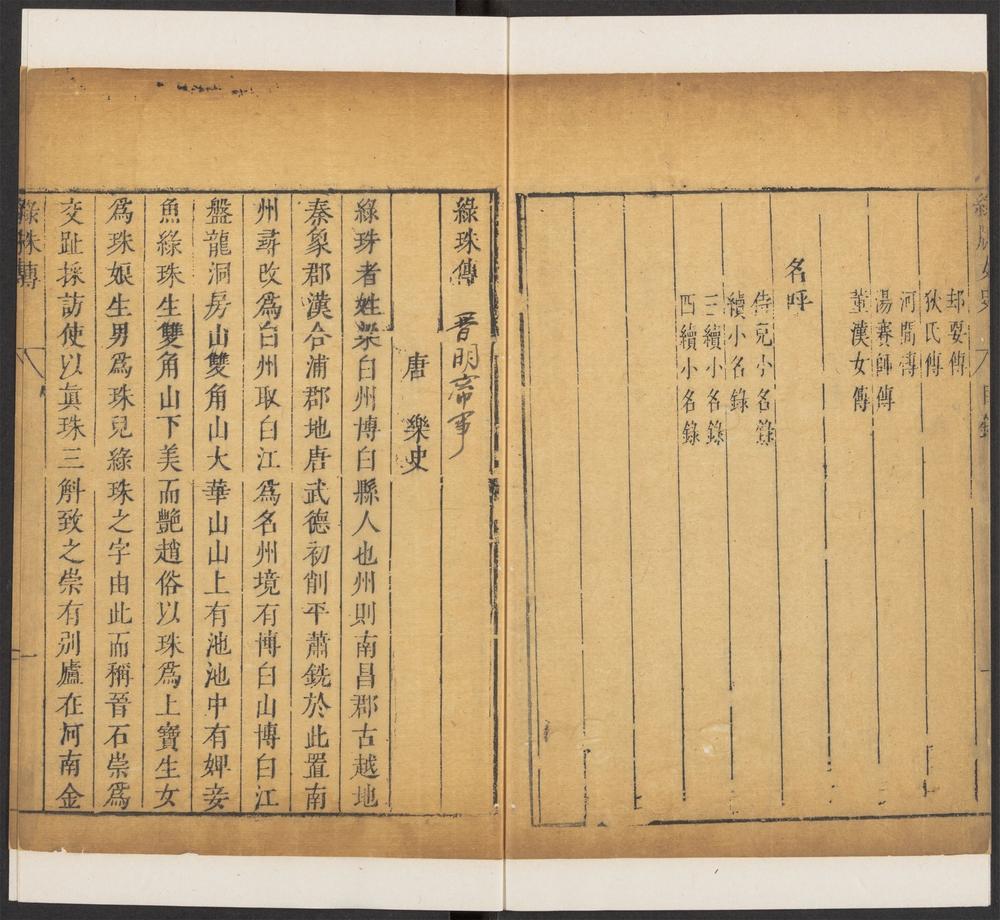 綠牕女史 目錄 一
却要傳
狄氏傳
河間傳
湯賽師傳
董漢女傳
名呼
侍兒小名錄
續小名錄
三續小名錄
四續小名錄
綠珠傳 晉明帝事
唐 樂史
綠珠者姓梁白州博白縣人也州則南昌郡古越地
秦象郡漢合浦郡地唐武德初削平蕭銑於此置南
州尋改爲白州取白江爲名州境有博白山博白江
盤龍洞房山雙角山大華山山上有池池中有婢妾
魚綠珠生雙角山下美而艷趙俗以珠爲上寶生女
爲珠娘生男爲珠兒綠珠之字由此而稱晉石崇爲
交趾採訪使以眞珠三斛致之崇有別廬在河南金
綠珠傳 一